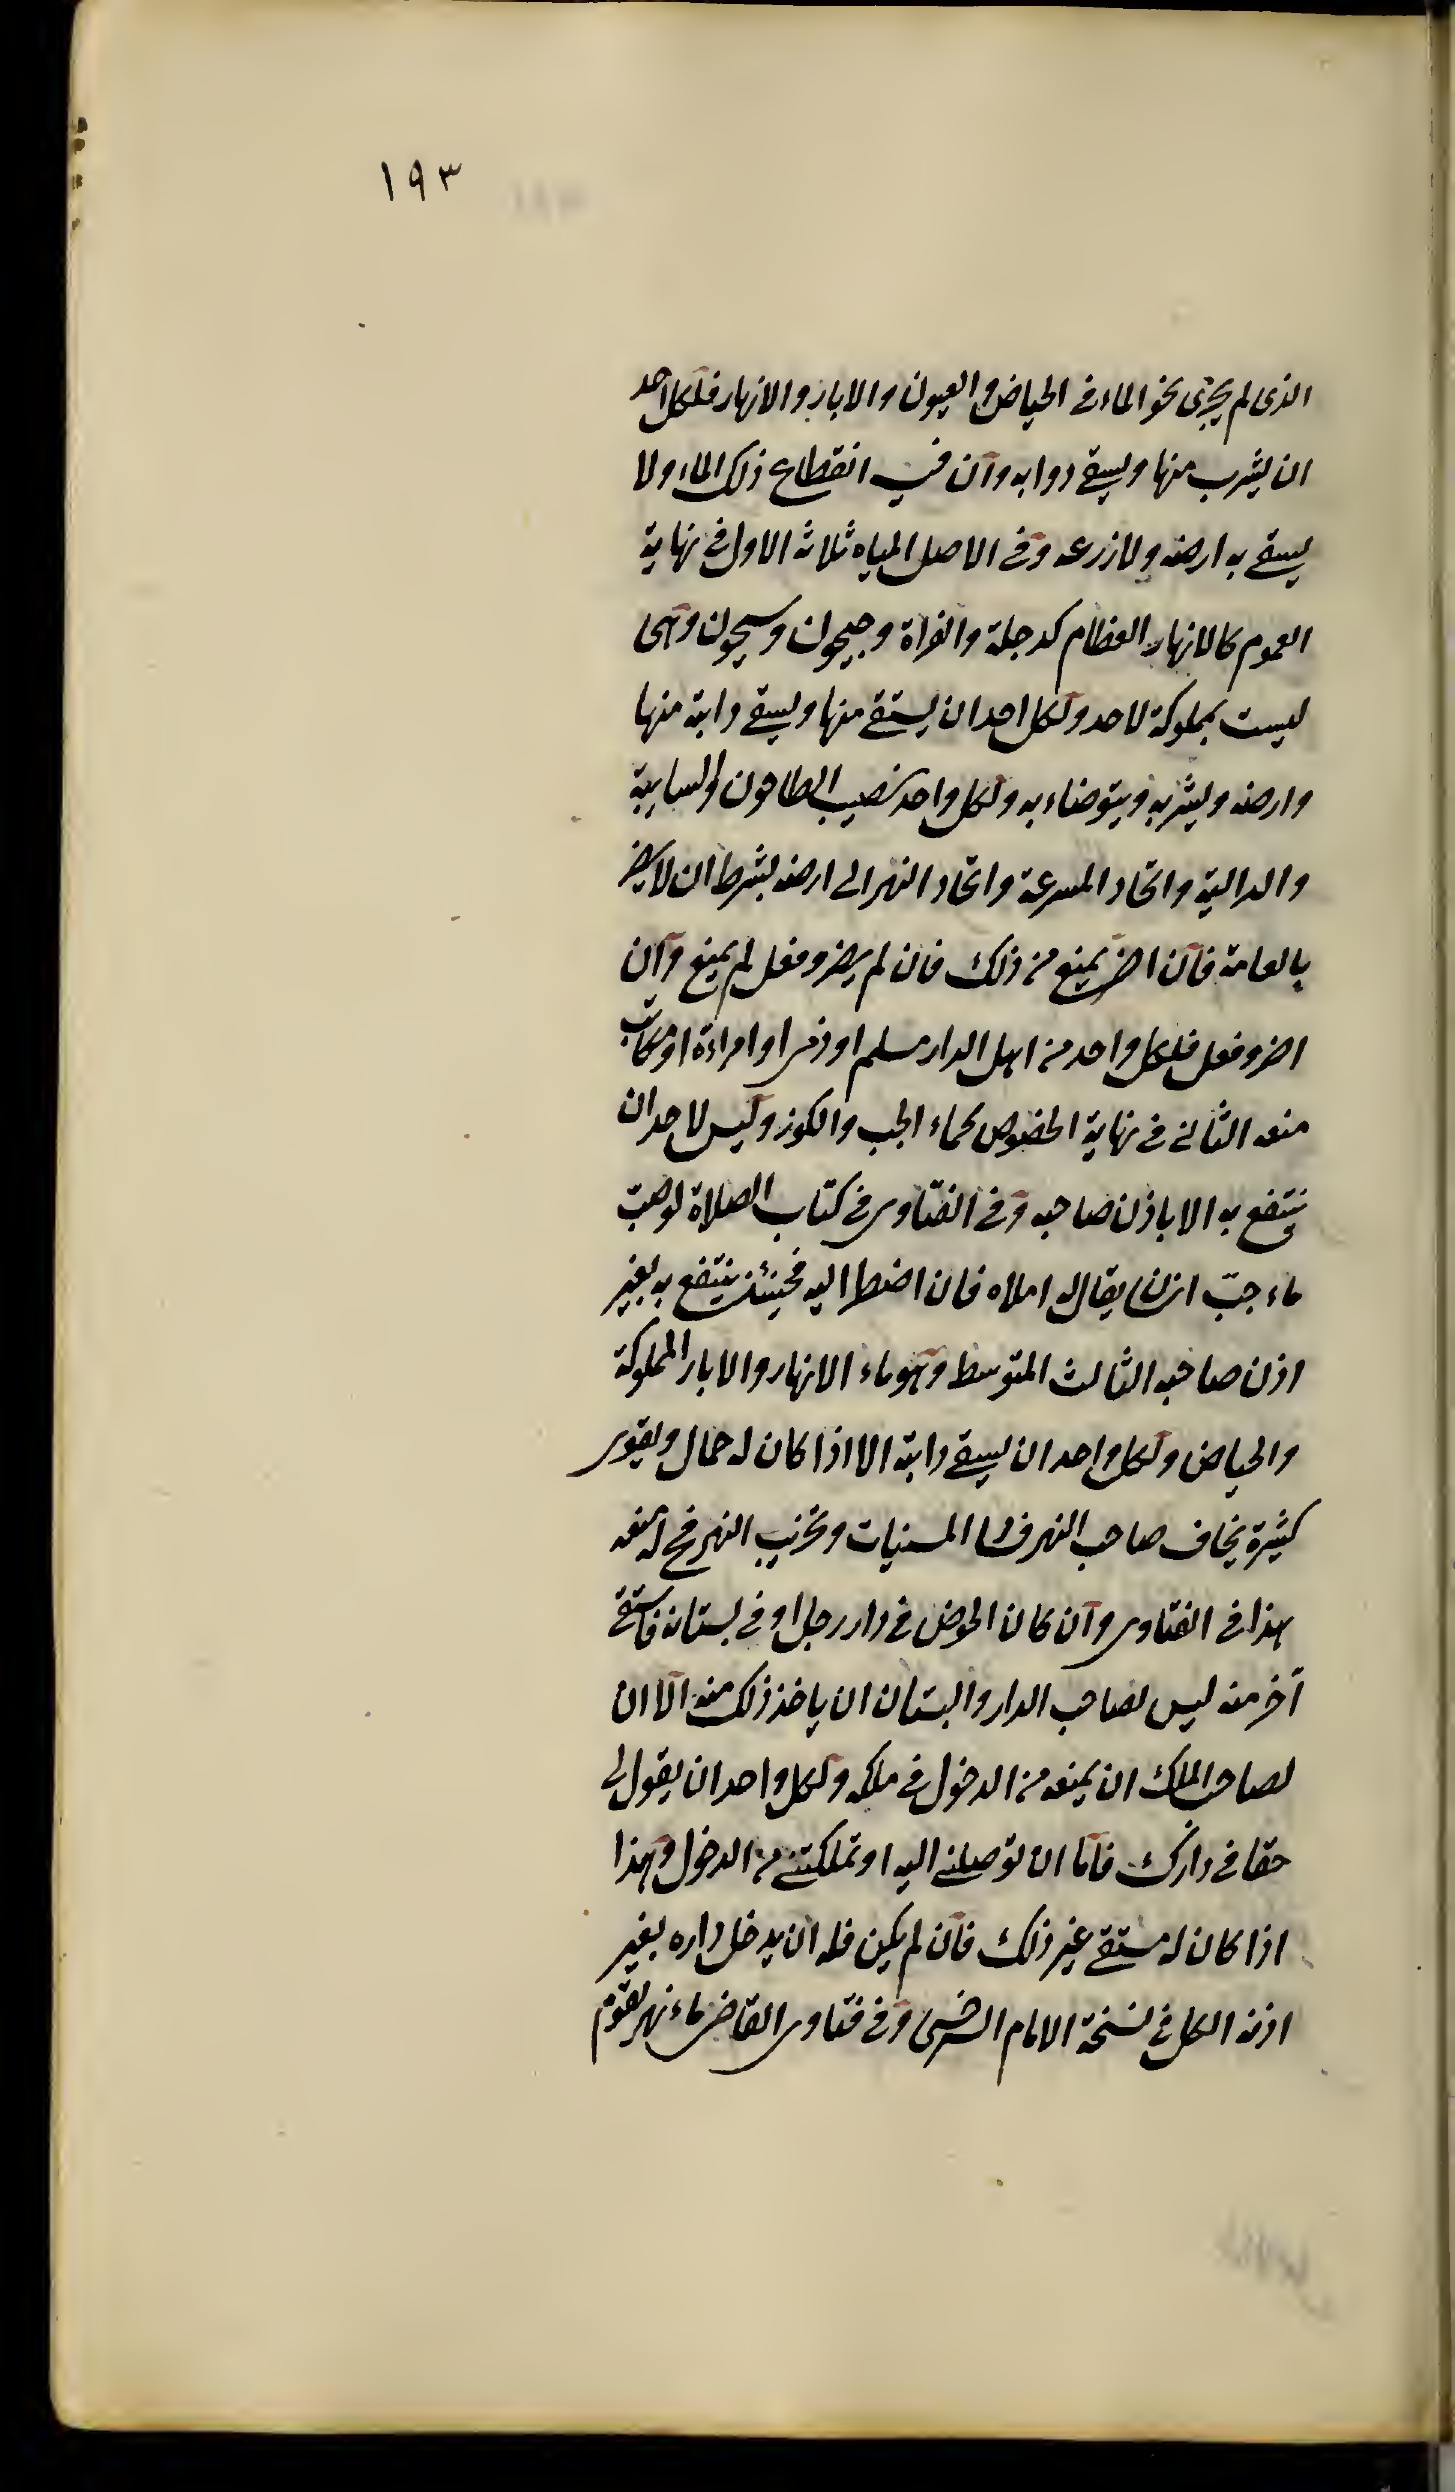 ١٩٣
الذى لم يحرى نحو الماء فى الحياض والعيون والابار والانهار فلكل احد
ان يشرب منها ويسقى دوابه وان فيه انقطاع ذلك الماء ولا
يسقى به ارضه ولا زرعه وفى الاصل المياه ثلاثة الاول فى نهاية
العموم كالانهار العظام كدجلة والفراة وجيحون وسيحون وهى
ليست بمملوكة لاحد ولكل احد ان يستقى منها ويسقى دابته منها
وارضه ويشربه ويتوضاء به ولكل واحد نصيب الطاحون والسايبة
والدالية واتخاد المسرعة واتخاد النهر الى ارضه بشرط ان لا يضر
بالعامة فان اضر يمنع من ذلك فان لم يضر وفعل لم يمنع وان
اضر وفعل فلكل واحد من اهل الدار مسلم او ذمى او امراءة او مكاتب
منعه الثانى فى نهاية الخصوص كماء الجب والكوز وليس لاحد ان
ينتفع به الا باذن صاحبه وفى الفتاوى فى كتاب الصلاة لو صب
ماء جب انسان يقال له املاه فان اضطر اليه فحينئذ ينتفع به بغير
اذن صاحبه الثالث المتوسط وهو ماء الانهار والابار المملوكة
والحياض ولكل واحد ان يسقى دابته الا اذا كان له جمال وبقور
كثيرة يخاف صاحب النهر المسنيات وتخريب النهر فح له منعه
هذا فى الفتاوى وان كان الحوض فى دار رجل او فى بستانه فاستقى
آخر منه ليس لصاحب الدار والبستان ان ياخذ ذلك منه الا ان
لصاحب الملك ان يمنعه من الدخول فى ملكه ولكل واحد ان يقول لى
حقا فى دارك فاما ان توصلنى اليه او تملكتنى من الدخول وهذا
اذا كان له مستقى غير ذلك فان لم يكن فله ان يدخل داره بغير
اذنه الكل فى نسخة الامام السرخسى وفى فتاوى القاضى ماء نهر لقوم